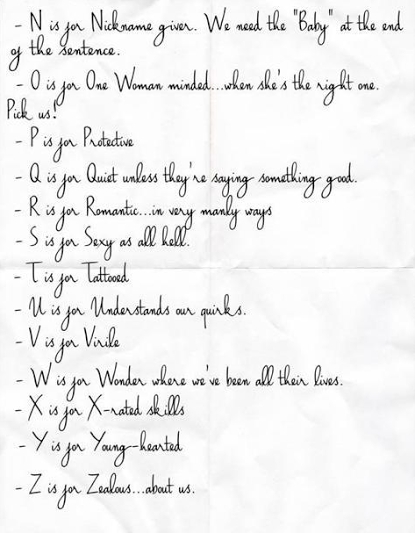 - N is for Nickname giver. We need the "Baby" at the end
of the sentence.
- O is for One Woman minded...when she's the right one.
Pick us!
- P is for Protective
- Q is for Quiet unless they're saying something good.
- R is for Romantic...in very manly ways
- S is for Sexy as all hell.
- T is for Tattooed
- U is for Understands our quirks.
- V is for Virile
- W is for Wonder where we've been all their lives.
- X is for X-rated skills
- Y is for Young-hearted
- Z is for Zealous...about us.